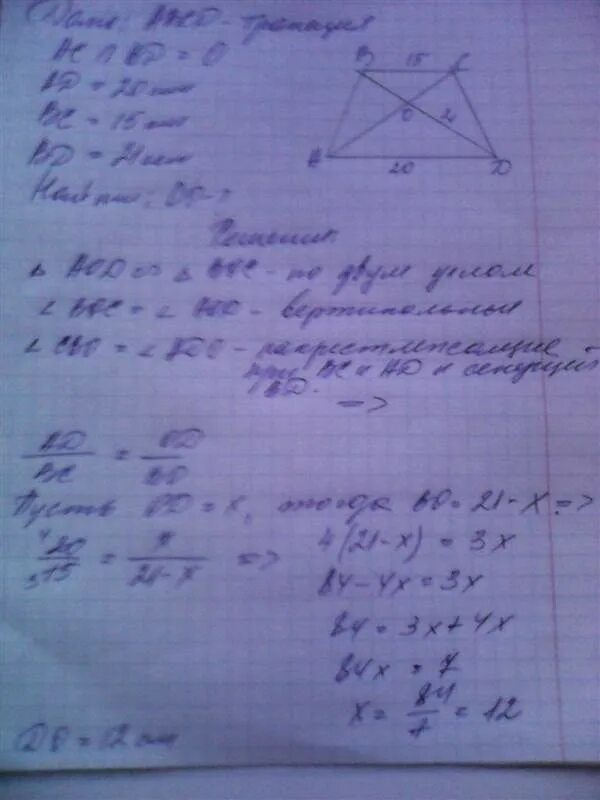 Дано: ABCD - трапеция
AC ∩ BD = O
AD = 20 см
BC = 15 см
BD = 21 см
Найти: OD - ?
B 15 C
O 21
A 20 D
Решение
△ AOD ∾ △ BOC - по двум углом
∠ BOC = ∠ AOD - вертикальные
∠ CBO = ∠ ADO - накрестлежащие
при BC и AD и секущей
BD.
=>
AD/BC = OD/BO
Пусть OD = x, тогда BO = 21 - x =>
4 20/3 15 = x/21-x =>
4(21-x) = 3x
84-4x = 3x
84 = 3x+4x
84x = 7
x = 84/7 = 12
DO = 12 см